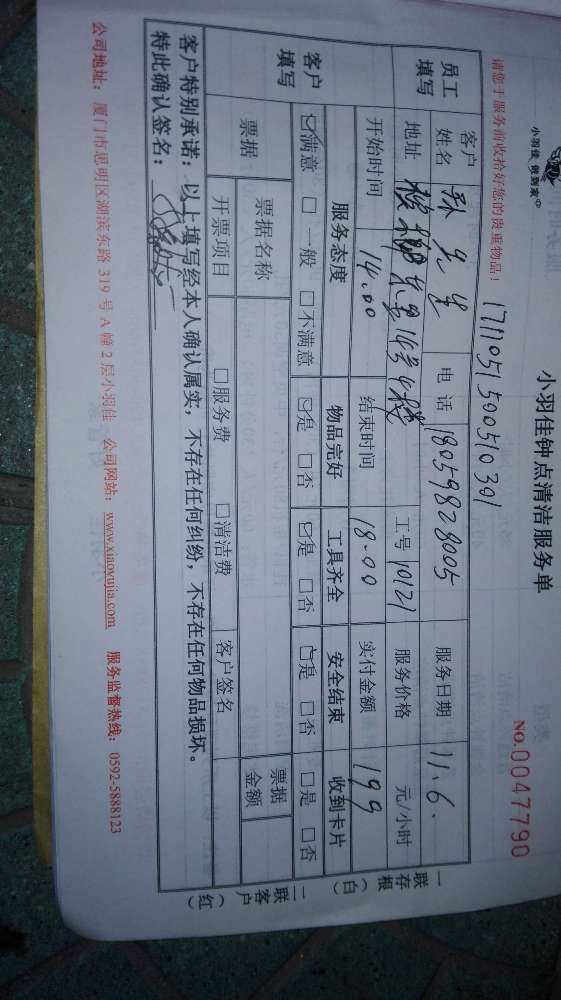 小羽佳 做到家
小羽佳钟点清洁服务单
请您于服务前收拾好您的贵重物品！
1711051500510301
NO.0047790
员工填写
客户姓名 孙先生 电话 18059828005 服务日期 11.6.
地址 工号 10121 服务价格 元/小时
开始时间 14.00 结束时间 18.00 实付金额 199
客户填写
服务态度 物品完好 工具齐全 安全结束 收到卡片
☑满意 □一般 □不满意 ☑是 □否 ☑是 □否 ☑是 □否 □是 □否
票据 票据名称 票据金额
开票项目 □服务费 □清洁费 客户签名
客户特别承诺：以上填写经本人确认属实，不存在任何纠纷，不存在任何物品损坏。
特此确认签名：
一联存根（白）
二联客户（红）
公司地址：厦门市思明区湖滨东路 319 号 A 幢 2 层小羽佳 公司网站：www.xiaoyujia.com 服务监督热线：0592-5888123